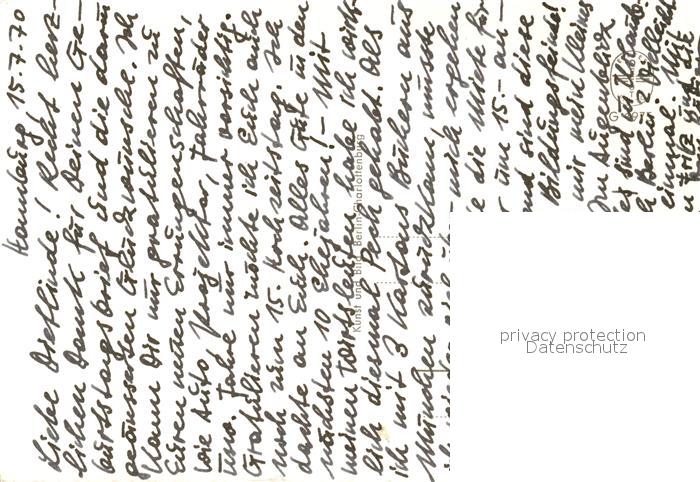 Hamburg 15.7.70
Liebe Dieflinde! Recht herz-
lichen Dank für Deinen Ge-
burtstagsbrief und die darin
geäusserten Glückwünsche. Ich
kann Dir nur gratulieren zu
Euren neuen Errungenschaften,
wie Auto, Projektor, Fahrräder
usw. Fahre nur immer vorsichtig.
Gratulieren möchte ich Euch auch
noch zum 15. Hochzeitstag. Ich
dachte an Euch. Alles Gute in den
nächsten 10 Ehejahren! – Mit
meinen Wirtsleuten habe ich wirk-
lich diesmal Pech gehabt. Als
ich mit 3 Kartons Büchern aus
München zurückkam, musste
mich ergehen
die Miete für
um 15.- an-
sind diese
Bildungsfeinde!
mir mein kleines
Im Augenblick
sind wir
Berlin. Vielleicht
einmal. Mit
Kunst und Bild, Berlin-Charlottenburg
privacy protection
Datenschutz